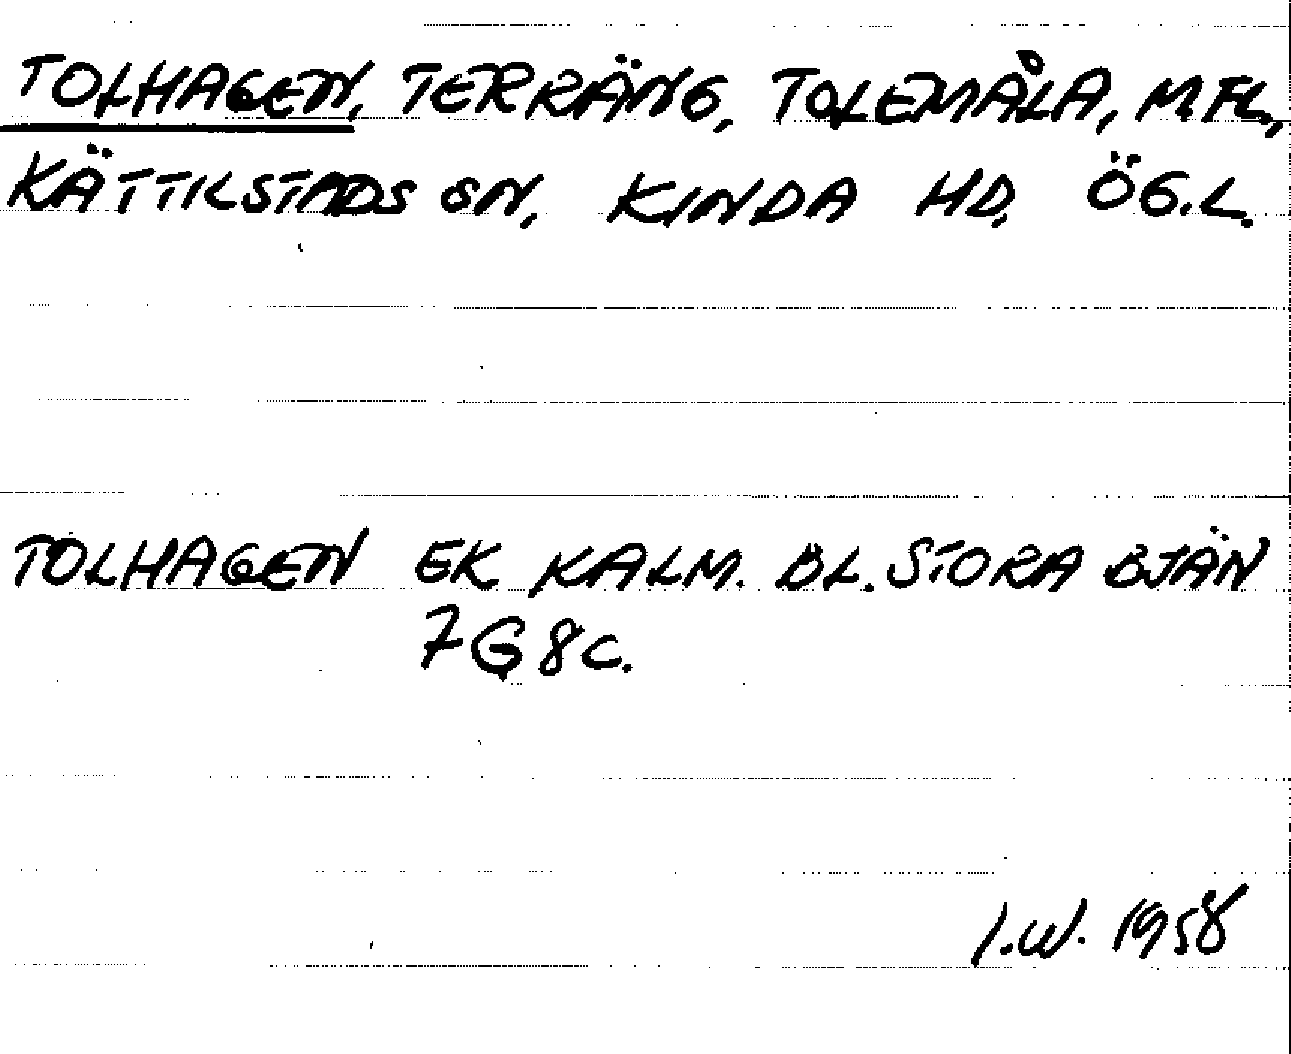 TOLHAGEN, TERRÄNG, TOLEMÅLA, M.FL.,
KÄTTILSTADS SN, KINDA HD, ÖG.L.
TOLHAGEN EK KALM. BL. STORA BJÄN
7G8C.
I.W. 1958